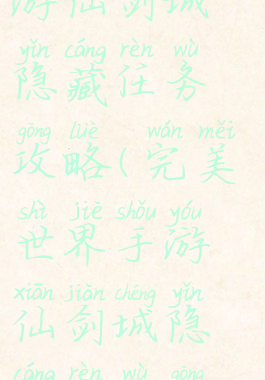 游仙剑城
yǐn cáng rèn wù
隐藏任务
gōng lüè wán měi
攻略(完美
shì jiè shǒu yóu
世界手游
xiān jiàn chéng yǐn
仙剑城隐
cáng rèn wù gōng